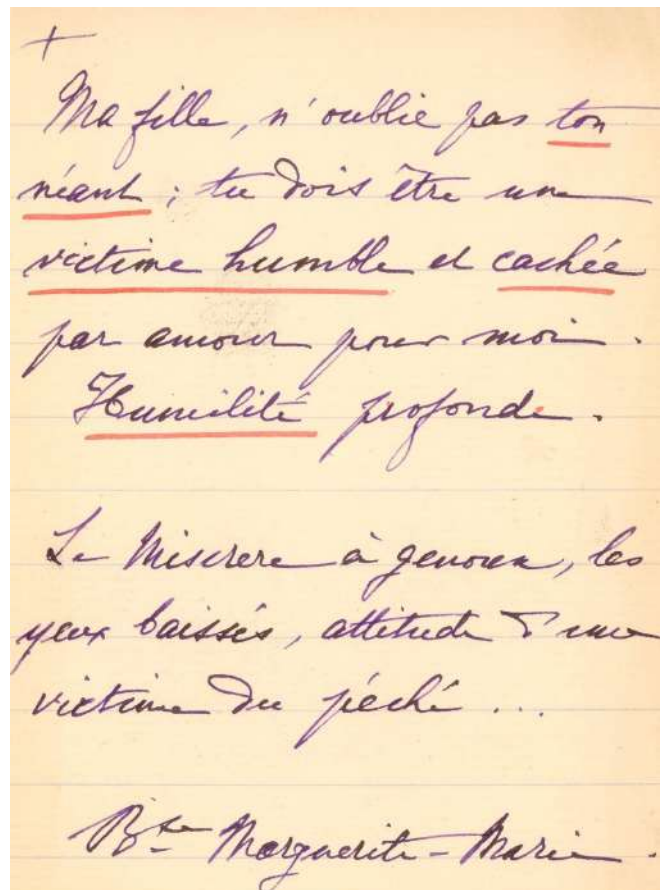 +
Ma fille, n'oublie pas ton
néant ; tu dois être une
victime humble et cachée
par amour pour moi.
Humilité profonde.
Le Miserere à genoux, les
yeux baissés, attitude d'une
victime du péché ...
Bse Marguerite-Marie.